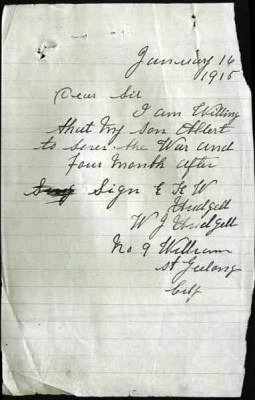 January 16
1915
Dear Sir
I am Willing
that My Son Albert
to serve the War and
four Month after
Sign E H W
Hudgell
W J Hudgell
No 9 William
St Geelong